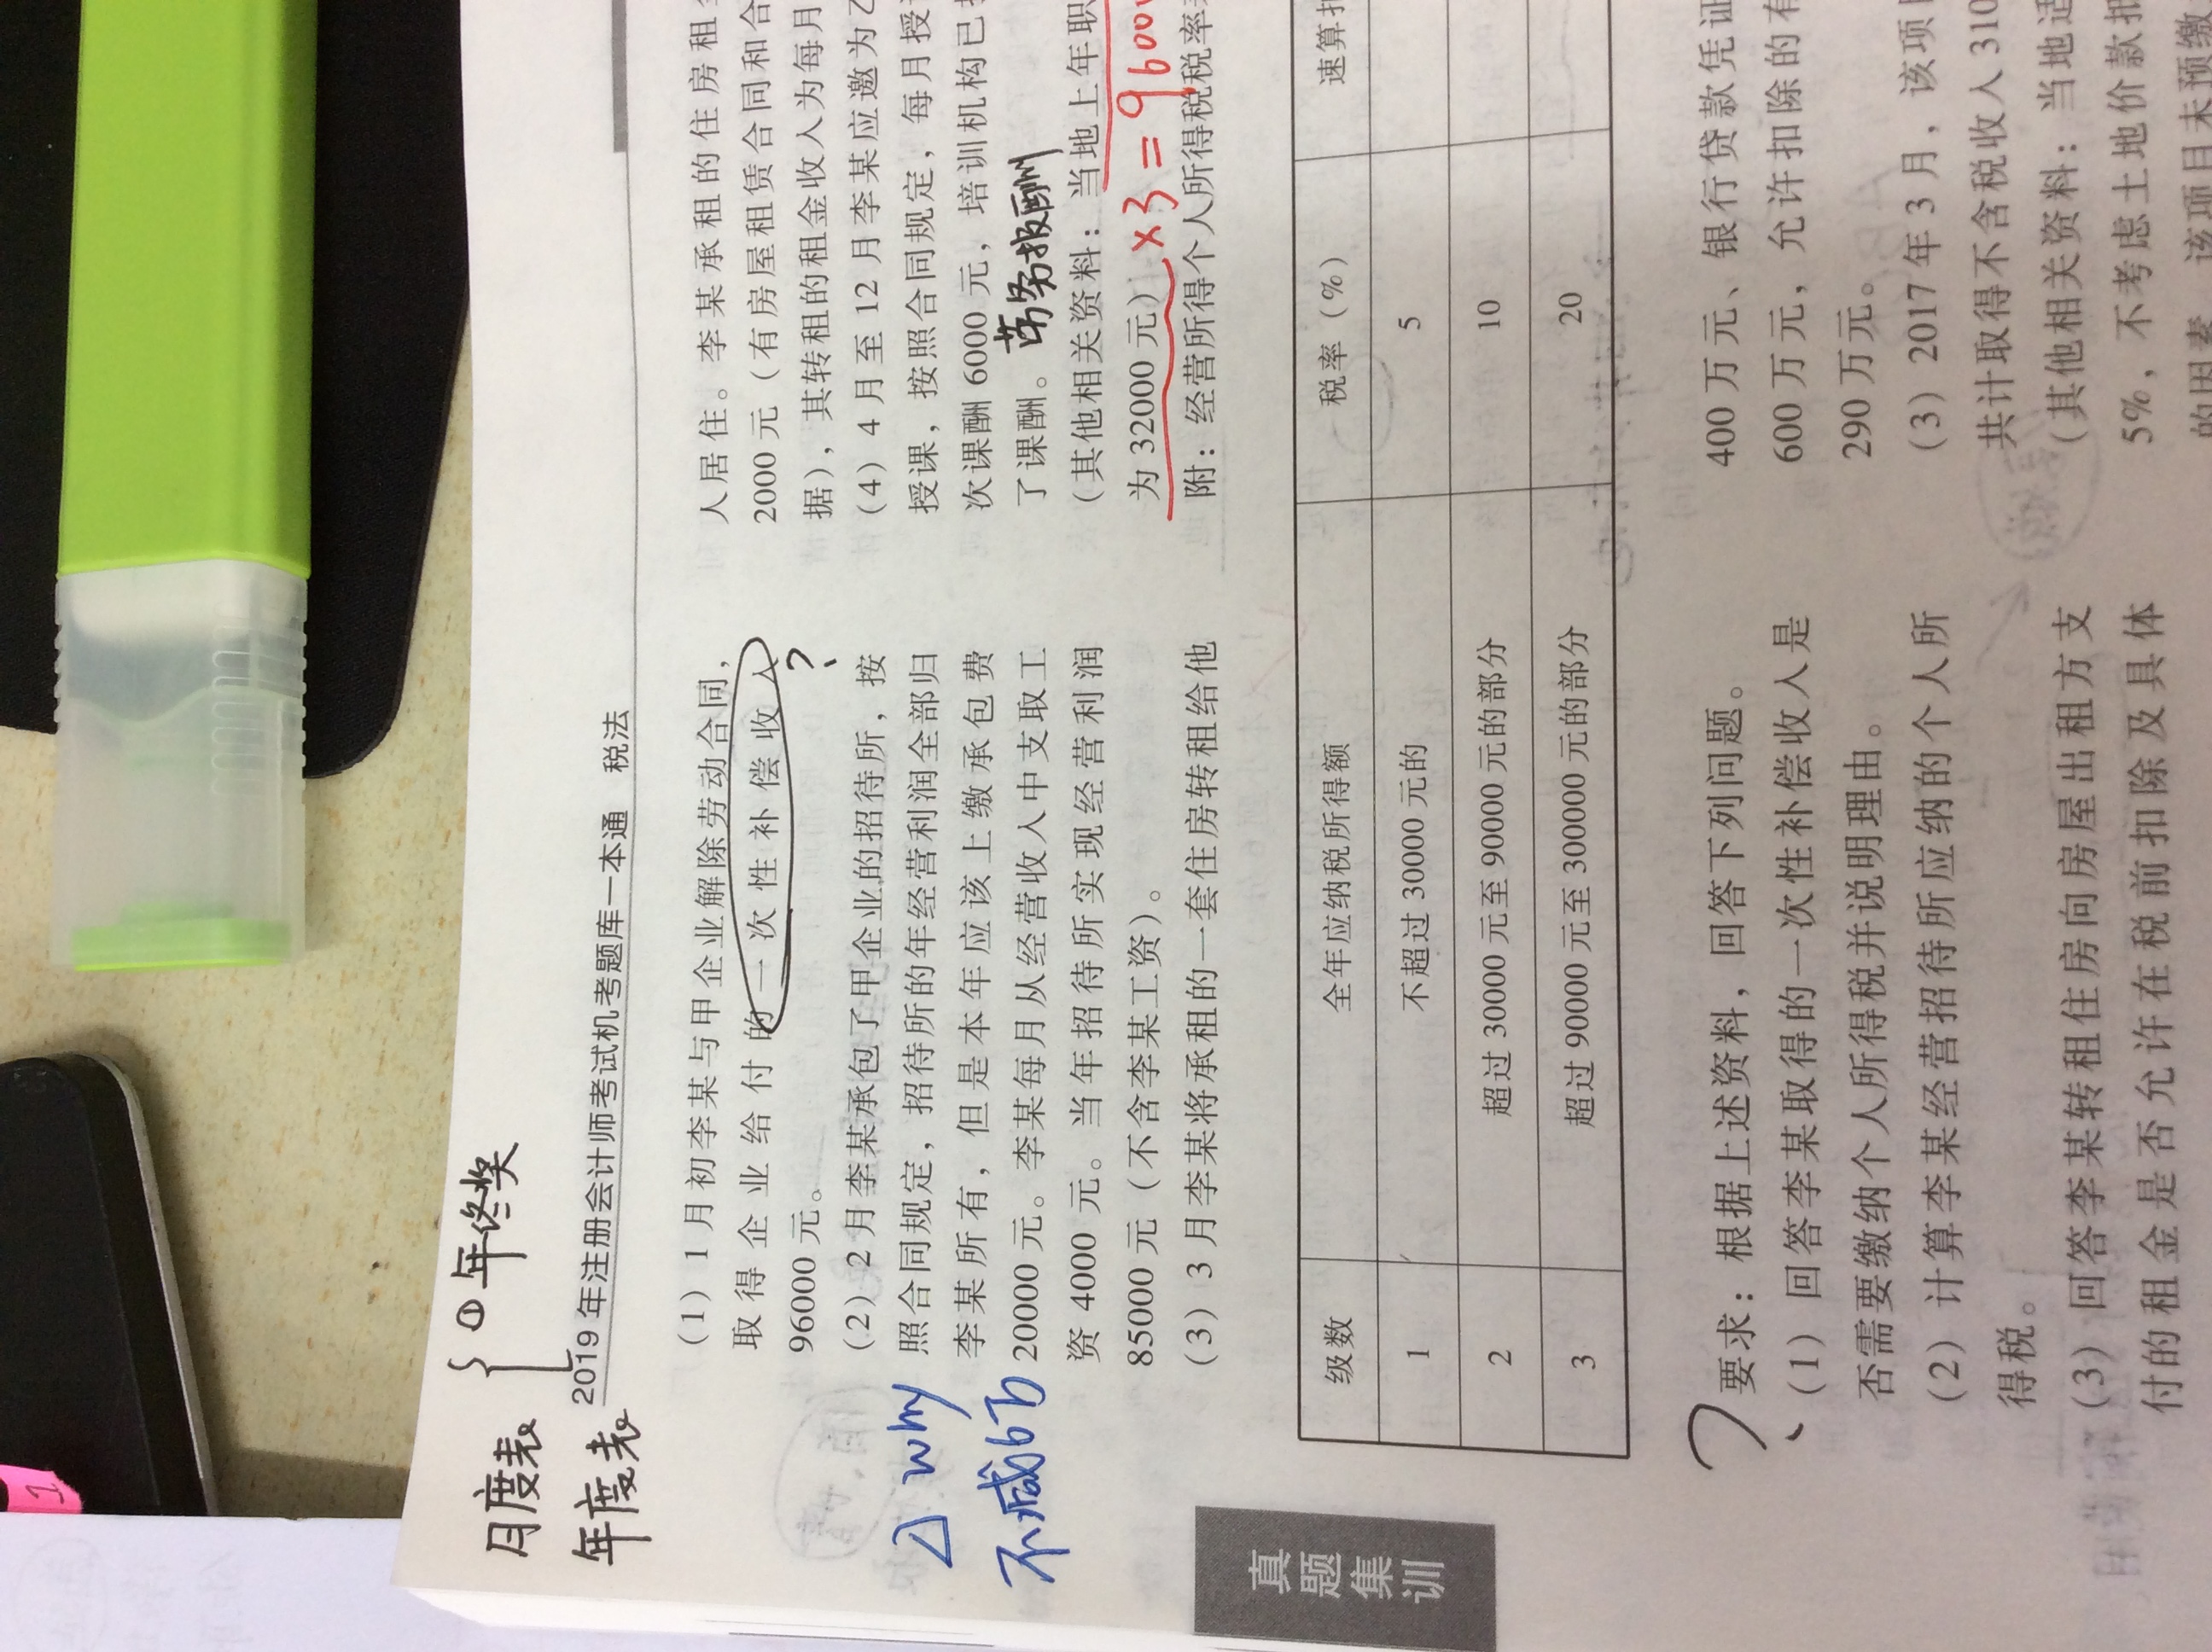 月度表
①年终奖
年度表
2019 年注册会计师考试机考题库一本通 税法
(1) 1 月初李某与甲企业解除劳动合同，
取得企业给付的一次性补偿收入
96000 元。
?
(2) 2 月李某承包了甲企业的招待所，按
照合同规定，招待所的年经营利润全部归
李某所有，但是本年应该上缴承包费
20000 元。李某每月从经营收入中支取工
资 4000 元。当年招待所实现经营利润
85000 元（不含李某工资）。
(3) 3 月李某将承租的一套住房转租给他
△ why
不减6万
人居住。李某承租的住房租
2000 元（有房屋租赁合同和合
据），其转租的租金收入为每月
(4) 4 月至 12 月李某应邀为乙
授课，按照合同规定，每月授
次课酬 6000 元，培训机构已
了课酬。
劳务报酬
（其他相关资料：当地上年职
为 32000 元）
×3=9600
附：经营所得个人所得税税率
级数 全年应纳税所得额 税率（%） 速算
1 不超过 30000 元的 5
2 超过 30000 元至 90000 元的部分 10
3 超过 90000 元至 300000 元的部分 20
真题集训
?
要求：根据上述资料，回答下列问题。
(1) 回答李某取得的一次性补偿收入是
否需要缴纳个人所得税并说明理由。
(2) 计算李某经营招待所应纳的个人所
得税。
(3) 回答李某转租住房向房屋出租方支
付的租金是否允许在税前扣除及具体
400 万元、银行贷款凭证
600 万元，允许扣除的有
290 万元。
(3) 2017 年 3 月，该项目
共计取得不含税收入 310
（其他相关资料：当地适
5%，不考虑土地价款抵
的因素，该项目未预缴
1